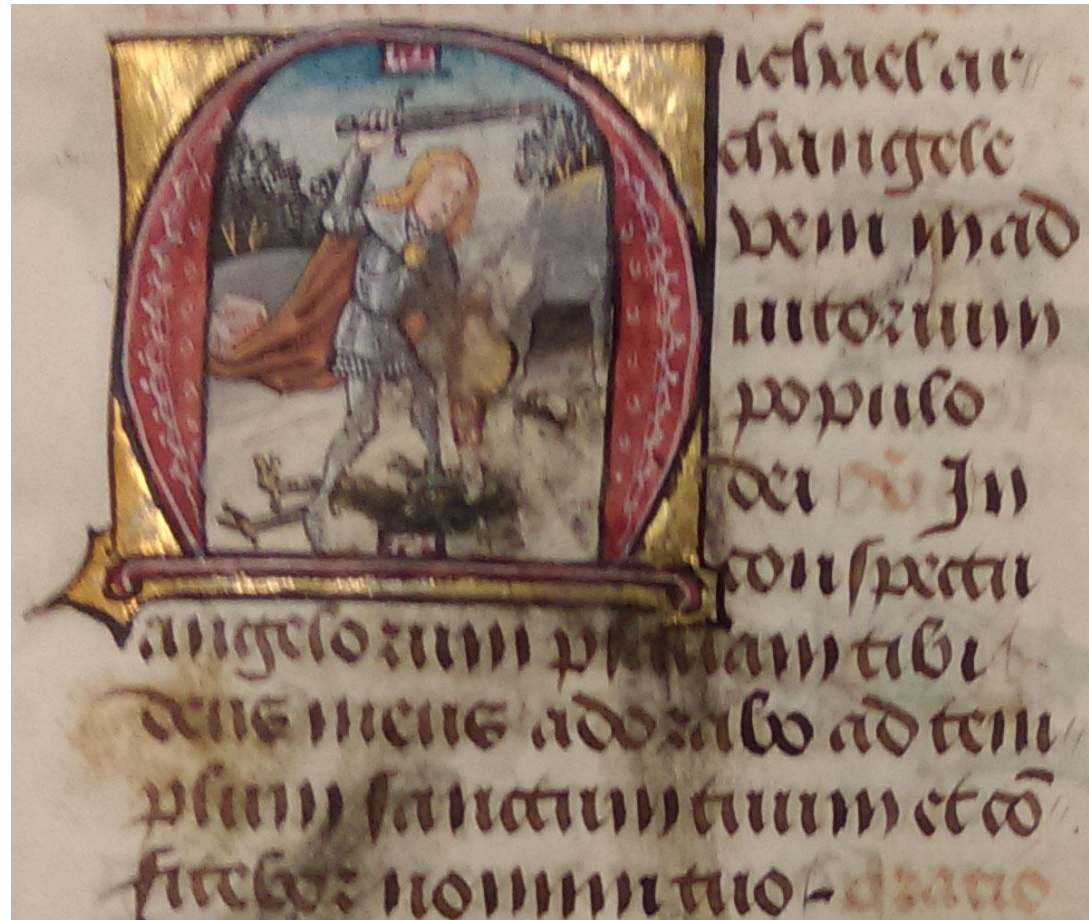 Michael ar
changele
veni in ad
iutorium
populo
dei In
conspectu
angelorum psallam tibi
deus meus adorabo ad tem
plum sanctum tuum et cō
fitebor nomini tuo - Oratio